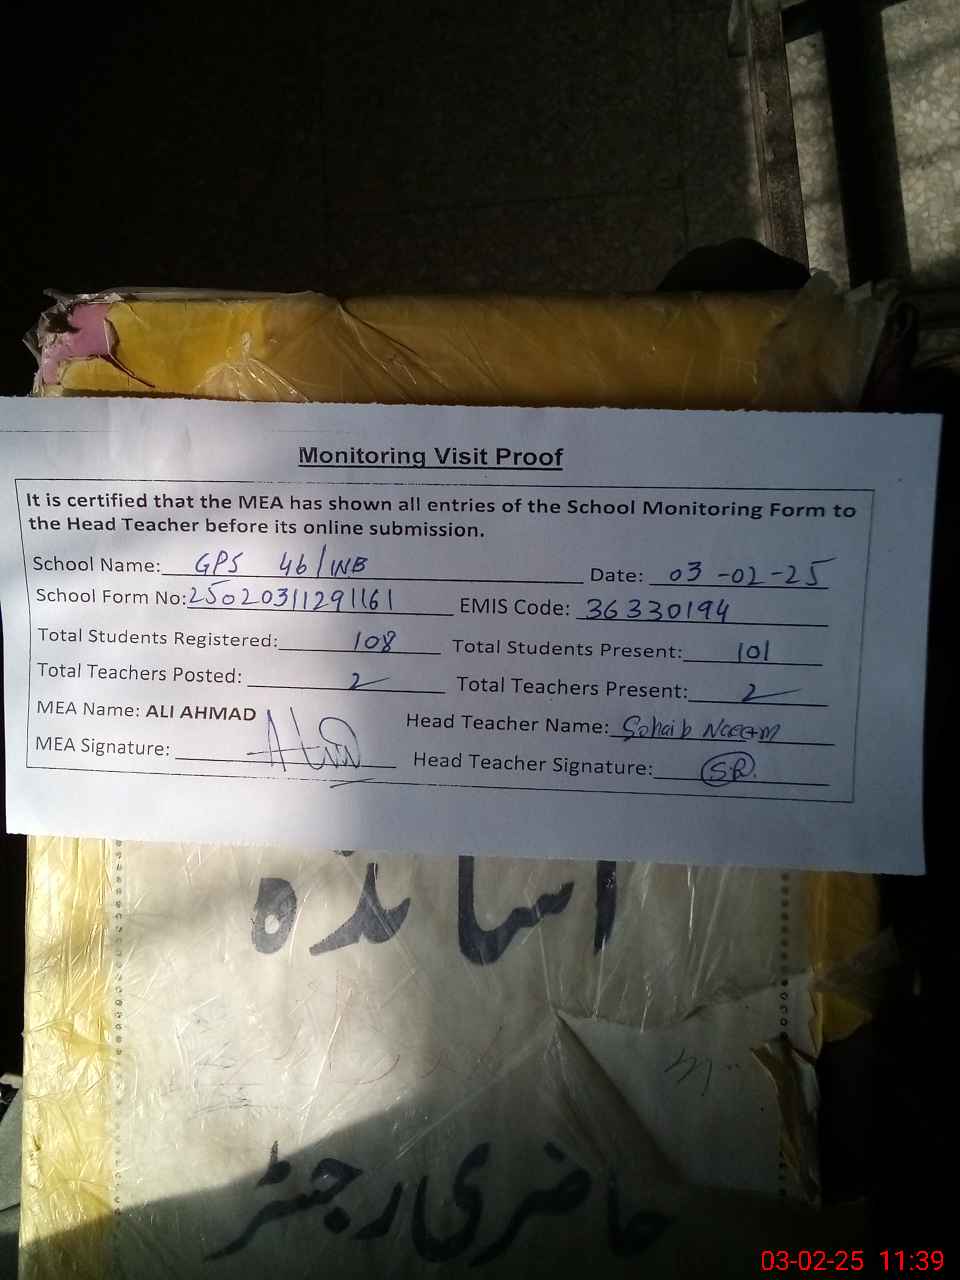 Monitoring Visit Proof
It is certified that the MEA has shown all entries of the School Monitoring Form to
the Head Teacher before its online submission.
School Name: GPS 46/WB Date: 03-02-25
School Form No: 25020311291161 EMIS Code: 36330194
Total Students Registered: 108 Total Students Present: 101
Total Teachers Posted: 2 Total Teachers Present: 2
MEA Name: ALI AHMAD Head Teacher Name: Sohaib Naeem
MEA Signature: Head Teacher Signature: SR
اساتذہ
حاضری رجسٹر
03-02-25 11:39